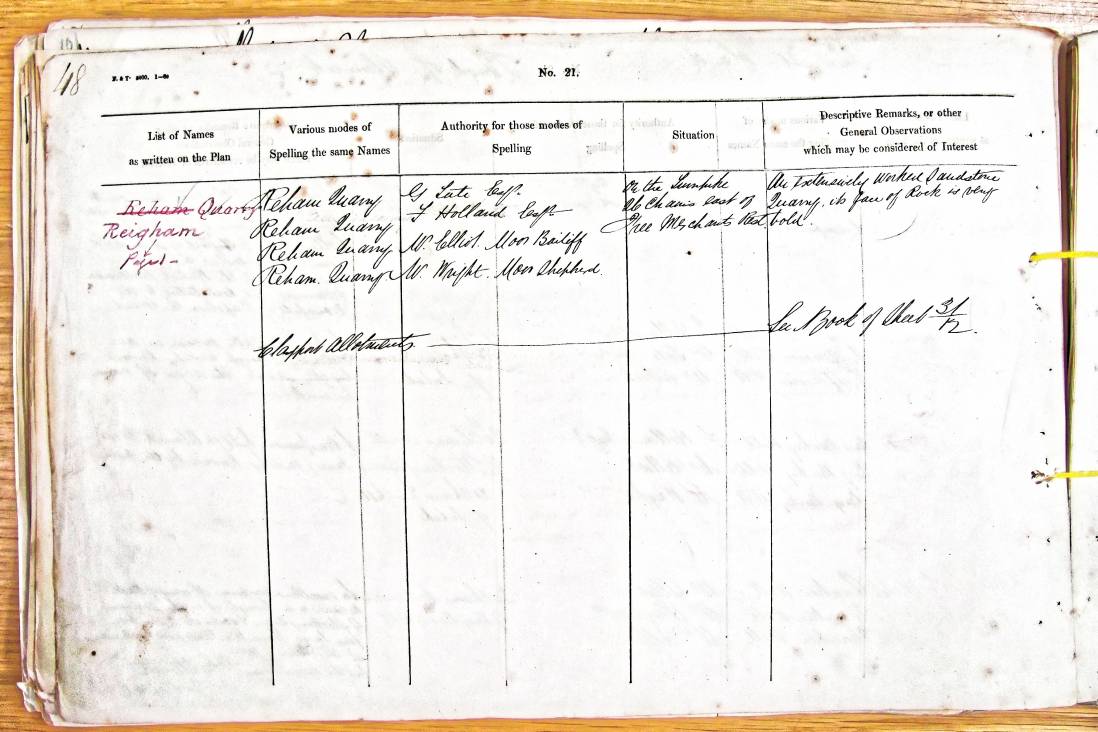 48
No. 21.
List of Names
as written on the Plan
Various modes of
Spelling the same Names
Authority for those modes of
Spelling
Situation
Descriptive Remarks, or other
General Observations
which may be considered of Interest
Reham Quarry
Reigham
Reham Quarry
Reham Quarry
Reham Quarry
Reham. Quarry
G Tate Esqr.
F Holland Esqr
W. Elliot. Moor Bailiff
W. Wright. Moor Shepherd.
On the Turnpike
Chains east of
Free Merchants Rest
An Extensively Worked Sandstone
Quarry, its face of Rock is very
bold.
Clayport Allotments
See Book of Sheet 31/12.